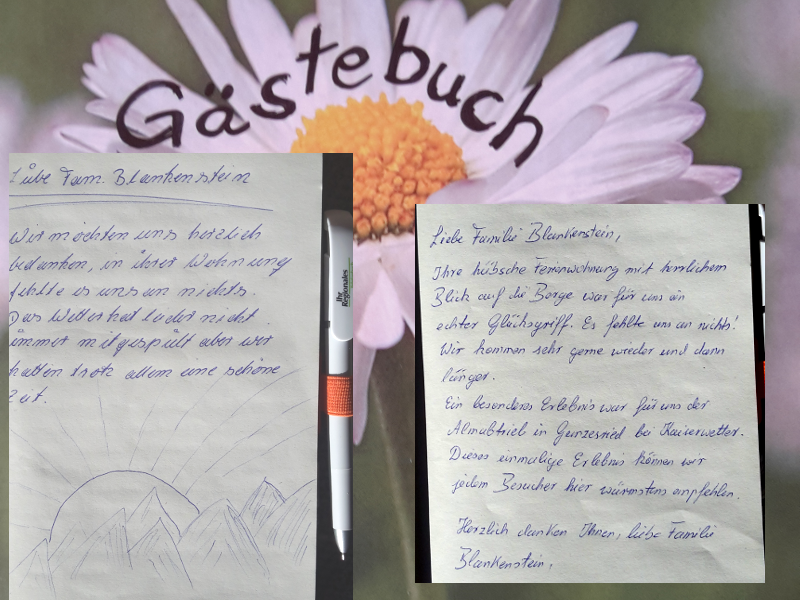 Gästebuch
Liebe Fam. Blankenstein
Wir möchten uns herzlich
bedanken, in ihrer Wohnung
fehlte es uns an nichts.
Das Wetter hat leider nicht
immer mitgespielt aber wir
hatten trotz allem eine schöne
Zeit.
Ihr
Regionales
Liebe Familie Blankenstein,
Ihre hübsche Ferienwohnung mit herrlichem
Blick auf die Berge war für uns ein
echter Glücksgriff. Es fehlte uns an nichts!
Wir kommen sehr gerne wieder und dann
länger.
Ein besonderes Erlebnis war für uns der
Almabtrieb in Gunzesried bei Kaiserwetter.
Dieses einmalige Erlebnis können wir
jedem Besucher hier wärmstens empfehlen.
Herzlich danken Ihnen, liebe Familie
Blankenstein,